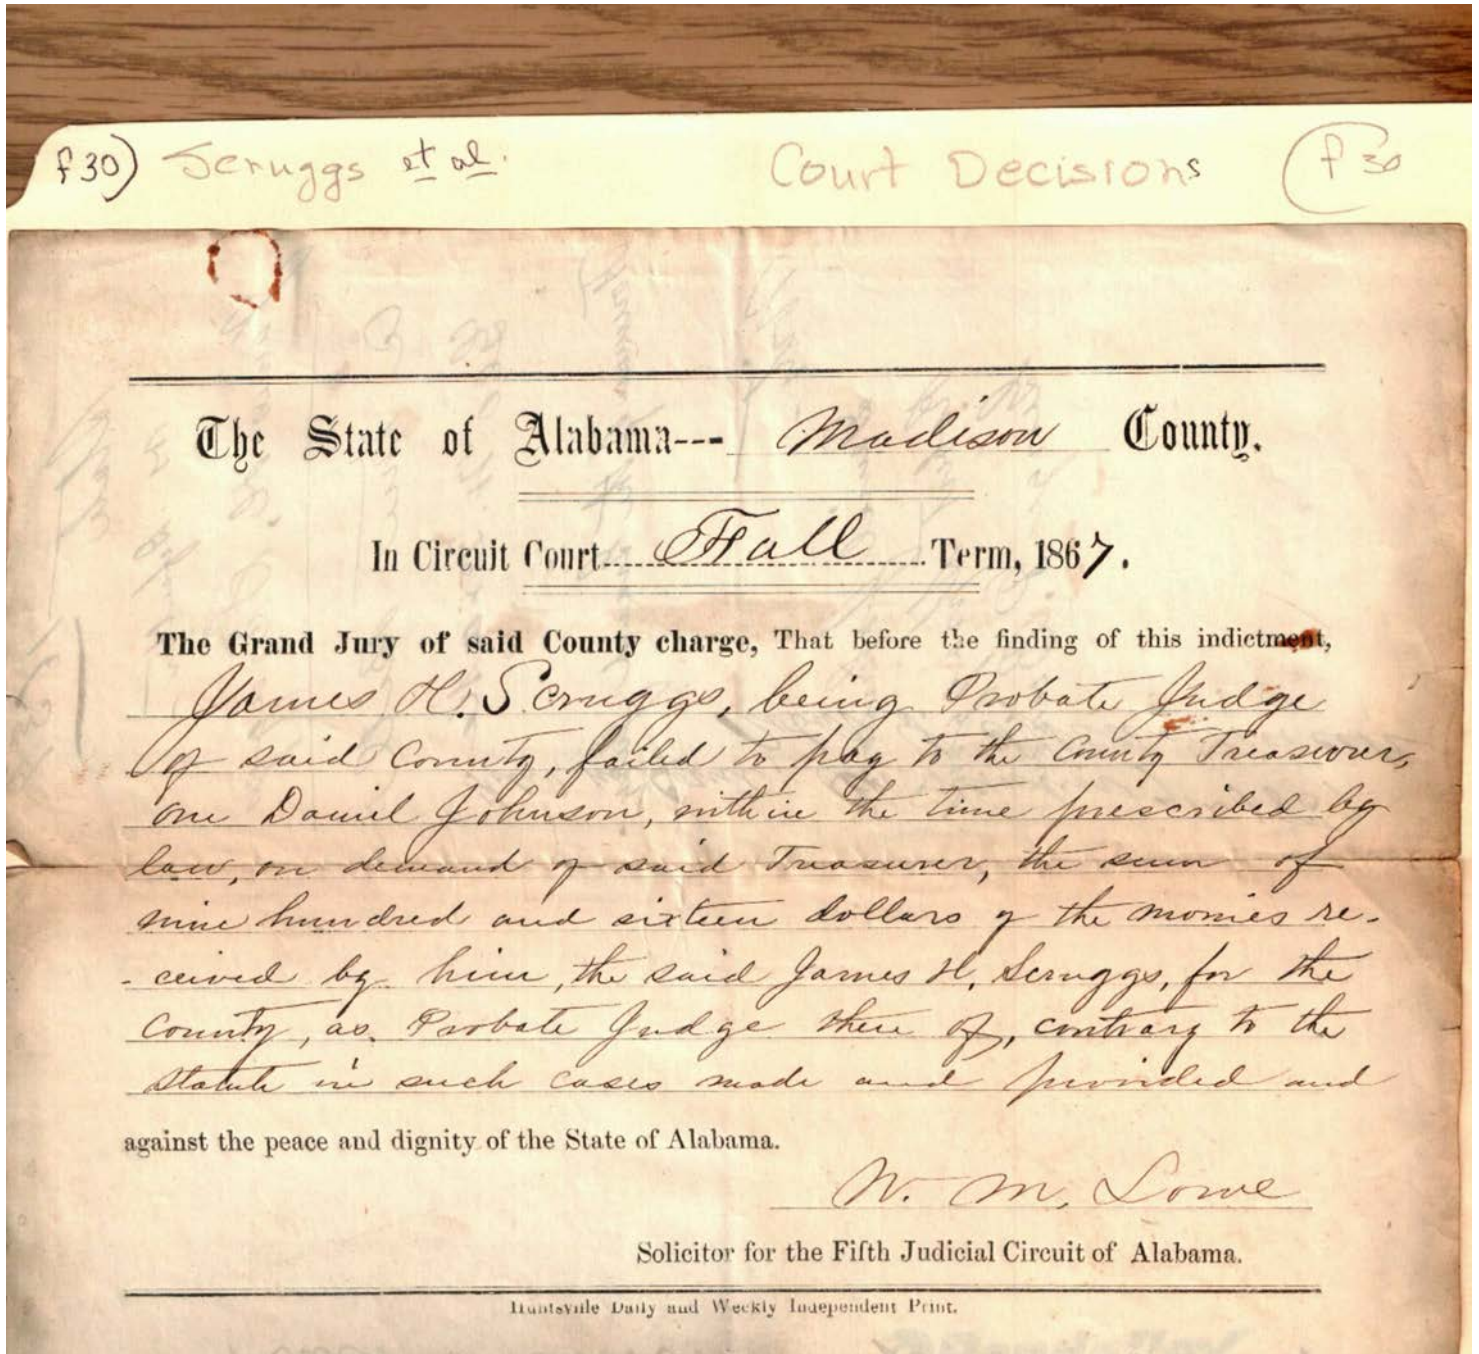 f 30) Scruggs et al. Court Decisions (f 30
The State of Alabama--- Madison County.
In Circuit Court Fall Term, 1867.
The Grand Jury of said County charge, That before the finding of this indictment,
James H. Scruggs, being Probate Judge
of said County, failed to pay to the County Treasurer,
one Daniel Johnson, within the time prescribed by
law, on demand of said Treasurer, the sum of
nine hundred and sixteen dollars of the monies re-
-ceived by him, the said James H. Scruggs, for the
County, as Probate Judge there of, contrary to the
Statute in such cases made and provided and
against the peace and dignity of the State of Alabama.
W. M. Lowe
Solicitor for the Fifth Judicial Circuit of Alabama.
Huntsville Daily and Weekly Independent Print.